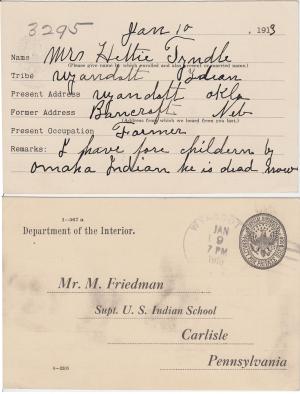 3295
Jan 10, 1913
Name Mrs Hettie Tyndle
(Please give name by which enrolled and also present connected name.)
Tribe Wyandott Indian
Present Address Wyandott Okla
Former Address Bancroft Neb
(Address from which we heard from you last.)
Present Occupation Farmer
Remarks: I have fore childern by
omaha Indian he is dead now
1-967 a
Department of the Interior.
JAN
9
7 PM
Mr. M. Friedman
Supt. U. S. Indian School
Carlisle
Pennsylvania